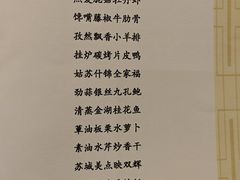 馋嘴藤椒牛肋骨
孜然飘香小羊排
挂炉碳烤片皮鸭
姑苏什锦全家福
劲蒜银丝九孔鲍
清蒸金湖桂花鱼
蕈油板栗水萝卜
素油水芹炒香干
苏城美点映双辉